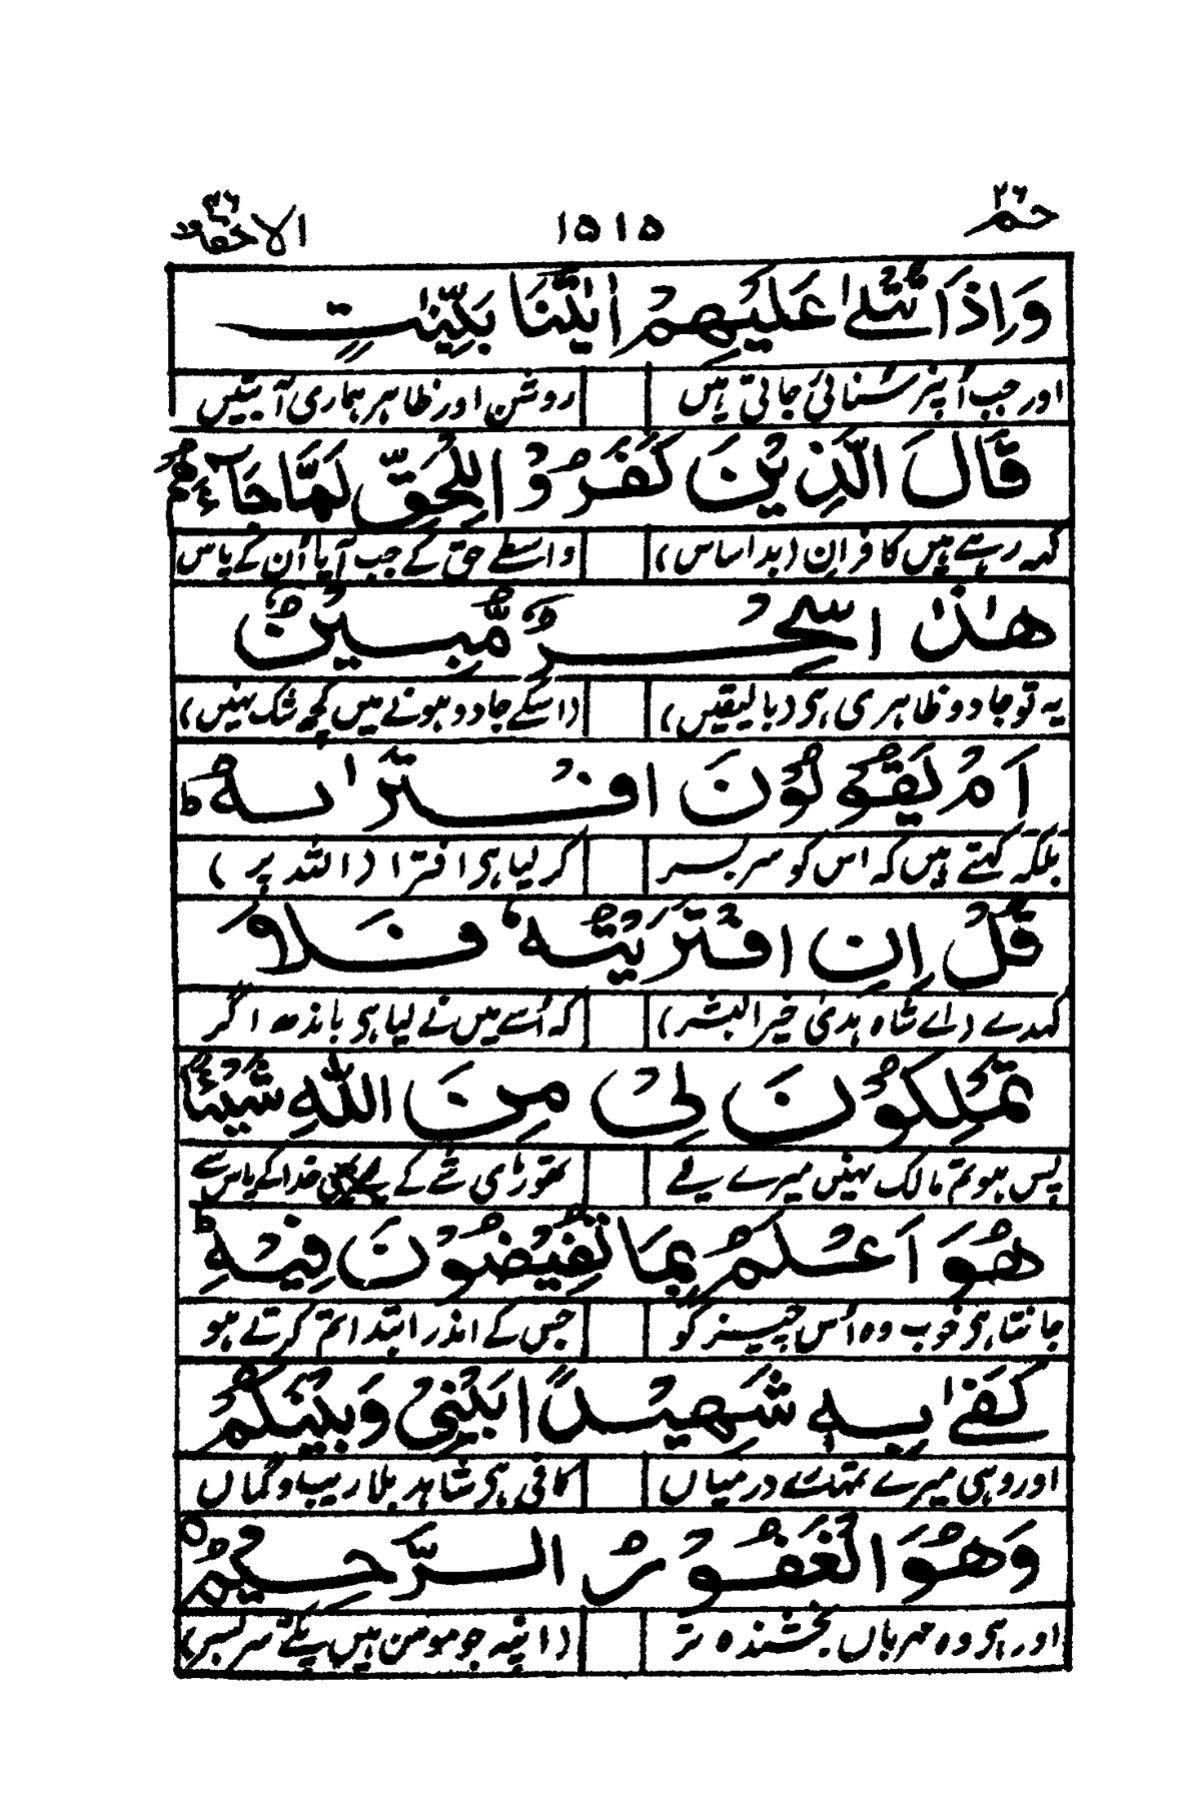 حٰمٓ ۲۶ ۱۵۱۵ الاحقاف ۴۶
وَاِذَا تُتْلٰى عَلَيْهِمْ اٰيٰتُنَا بَيِّنٰتٍ
اور جب اُن پر سُنائی جاتی ہیں روشن اور ظاہر ہماری آیتیں
قَالَ الَّذِيْنَ كَفَرُوْا لِلْحَقِّ لَمَّا جَآءَهُمْ
کہہ رہے ہیں کافران (بد اساس) واسطے حق کے جب آیا اُن کے پاس
هٰذَا سِحْرٌ مُّبِيْنٌ
یہ تو جادو ظاہری ہی (بالیقیں) (اسکے جادو ہونے میں کچھ شک نہیں)
اَمْ يَقُوْلُوْنَ افْتَرٰىهُ ط
بلکہ کہتے ہیں کہ اس کو سربسر کر لیا ہی افترا (اللہ پر)
قُلْ اِنِ افْتَرَيْتُهٗ فَلَا
کہدے (اے شاہ ہدیٰ خیر البشر) کہ اُسے میں نے لیا ہی باندھ اگر
تَمْلِكُوْنَ لِىْ مِنَ اللّٰهِ شَيْئًا
پس ہو تم مالک نہیں میرے لیے تھوڑی شے کے بھی خدا کے پاس سے
هُوَ اَعْلَمُ بِمَا تُفِيْضُوْنَ فِيْهِ ط
جانتا ہی خوب وہ اُس چیز کو جس کے اندر ابتدا تم کرتے ہو
كَفٰى بِهٖ شَهِيْدًۢا بَيْنِىْ وَبَيْنَكُمْ
اور وہی میرے تمہارے درمیاں کافی ہی شاہد بلا ریب و گماں
وَهُوَ الْغَفُوْرُ الرَّحِيْمُ ○
اور ہی وہ مہرباں بخشندہ تر جو مومن ہیں سربسر)